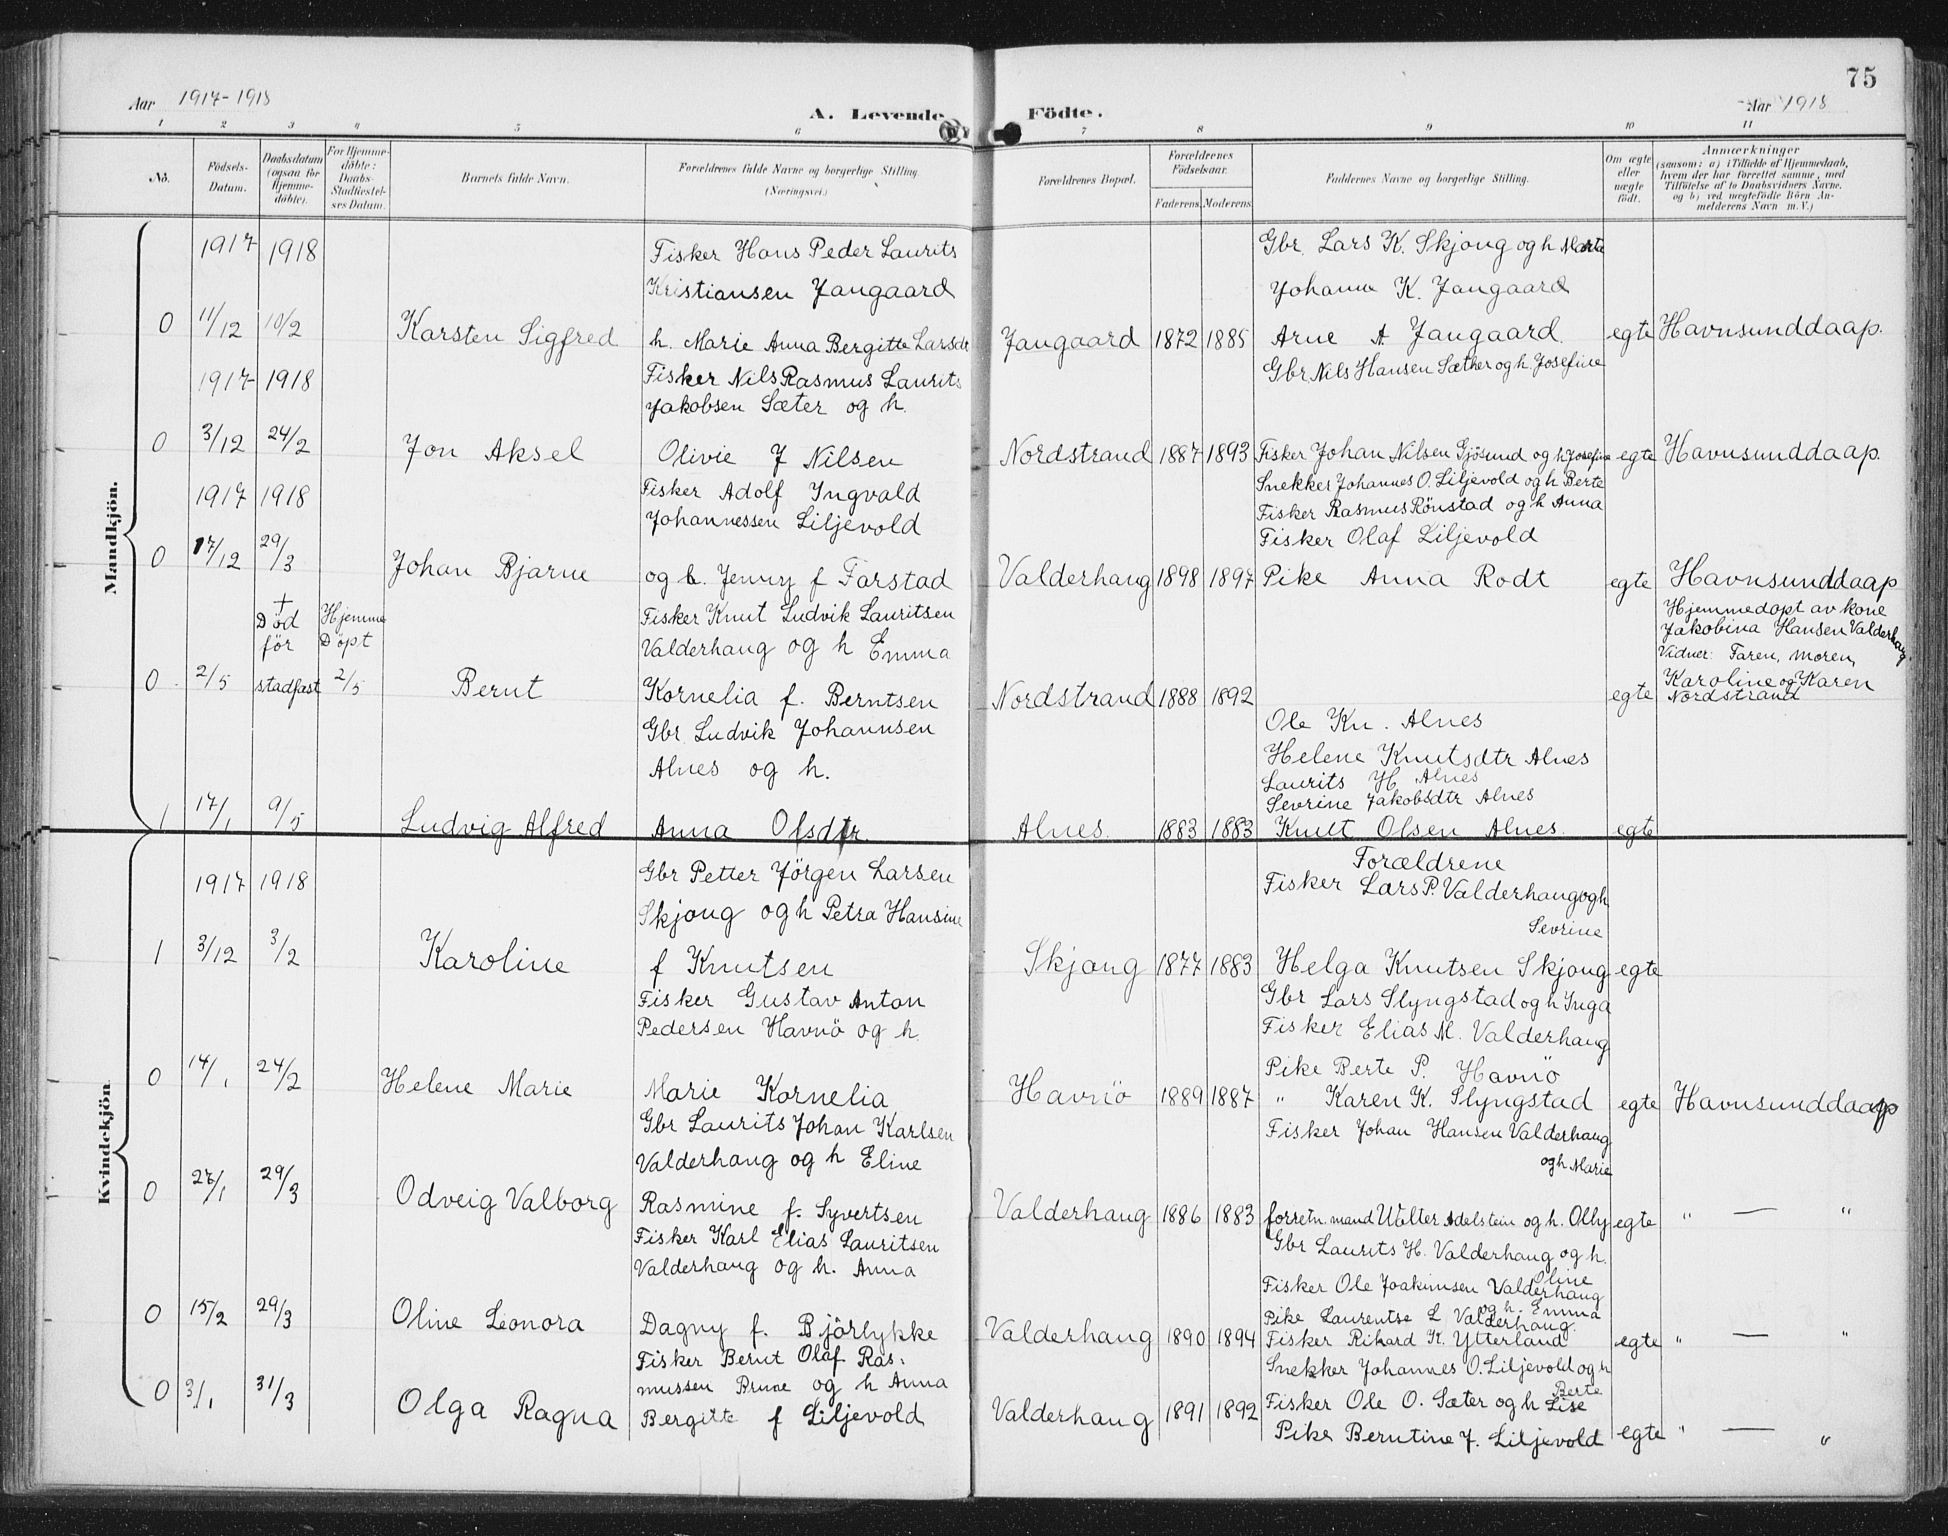 75
Aar 1917-1918
A. Levende Födte.
Aar 1918
1 2 3 4 5 6 7 8 9 10 11
No.
Födsels-Datum.
Daabsdatum (ogsaa for Hjemme-döbte).
For Hjemme-döbte: Daabs-Stadfæstel-ses Datum.
Barnets fulde Navn.
Forældrenes fulde Navne og borgerlige Stilling. (Næringsvei.)
Forældrenes Bopæl.
Forældrenes Födselsaar.
Faderens. Moderens.
Faddernes Navne og borgerlige Stilling.
Om ægte eller uægte födt.
Anmærkninger
(saasom: a) i Tilfælde af Hjemmedaab,
hvem der har forrettet samme, med
Tilföielse af to Daabsvidners Navne.
og b) ved uægtefödte Börn An-
melderens Navn m. V.)
Mandkjön.
1917 1918
Fisker Hans Peder Laurits
Kristiansen Jangaard
0 11/12 10/2 Karsten Sigfred
h. Marie Anna Bergitte Larsdt
Jangaard 1872 1885
Gbr. Lars K. Skjong og h Marte
Johanna K. Jangaard
Arne A Jangaard.
egte Havnsunddaap.
1917 1918
Fisker Nils Rasmus Laurits
Jakobsen Sæter og h.
0 3/12 24/2 Jon Aksel
Olivie J Nilsen
Nordstrand 1887 1893
Gbr Nils Hansen Sæther og h. Josefine
Fisker Johan Nilsen Gjösund og h Josefine
egte Havnsunddaap.
1917 1918
Fisker Adolf Ingvald
Johannessen Liljevold
0 17/12 29/3 Johan Bjarne
og h. Jenny f Farstad
Valderhaug 1898 1897
Snekker Johannes O. Liljevold og h Berte
Fisker Rasmus Rönstad og h Anna
Fisker Olaf Liljevold
Pike Anna Rodt
egte Havnsunddaap
+ Död för stadfast
Hjemme Döpt 2/5
Fisker Knut Ludvik Lauritsen
Valderhaug og h Emma
0 2/5 Bernt
Kornelia f. Berntsen
Nordstrand 1888 1892
egte
Hjemmedöpt av kone
Jakobina Hansen Valderhaug.
Vidner: Faren, moren,
Karoline og Karen
Nordstrand
Gbr Ludvik Johannsen
Alnes og h.
1 17/1 9/5 Ludvig Alfred
Anna Olsdtr.
Alnes. 1883 1883
Ole Kn. Alnes
Helene Knutsdtr Alnes
Laurits H Alnes
Sevrine Jakobsdtr Alnes
Knut Olsen Alnes.
egte
Kvindekjön.
1917 1918
Gbr Petter Jörgen Larsen
Skjong og h Petra Hansine
1 3/12 3/2 Karoline
f Knutsen
Skjong 1877 1883
Forældrene
Fisker Lars P. Valderhaug og h
Sevrine
Helga Knutsen Skjong
egte
Fisker Gustav Anton
Pedersen Havnö og h.
0 14/1 24/2 Helene Marie
Marie Kornelia
Havnö 1889 1887
Gbr Lars Slyngstad og h Inga
Fisker Elias M. Valderhaug
Pike Berte P. Havnö
" Karen K. Slyngstad
egte Havnsunddaap
Gbr Laurits Johan Karlsen
Valderhaug og h Eline
0 27/1 29/3 Odveig Valborg
Rasmine f. Syvertsen
Valderhaug 1886 1883
Fisker Johan Hansen Valderhaug
og h Marie
forretn.mand Walter Adelstein og h. Olly
egte " — "
Fisker Karl Elias Lauritsen
Valderhaug og h. Anna
0 15/2 29/3 Oline Leonora
Dagny f. Bjørlykke
Valderhaug 1890 1894
Gbr Laurits H. Valderhaug og h.
Oline
Fisker Ole Joakimsen Valderhaug
og h. Emma
Pike Laurentse L Valderhaug.
Fisker Rikard K. Ytterland
egte " — "
Fisker Bernt Olaf Ras-
mussen Brune og h Anna
0 3/1 31/3 Olga Ragna
Bergitte f Liljevold
Valderhaug 1891 1892
Snekker Johannes O. Liljevold og h
Berte
Fisker Ole O. Sæter og h Lise
Pike Berntine J. Liljevold
egte " — "